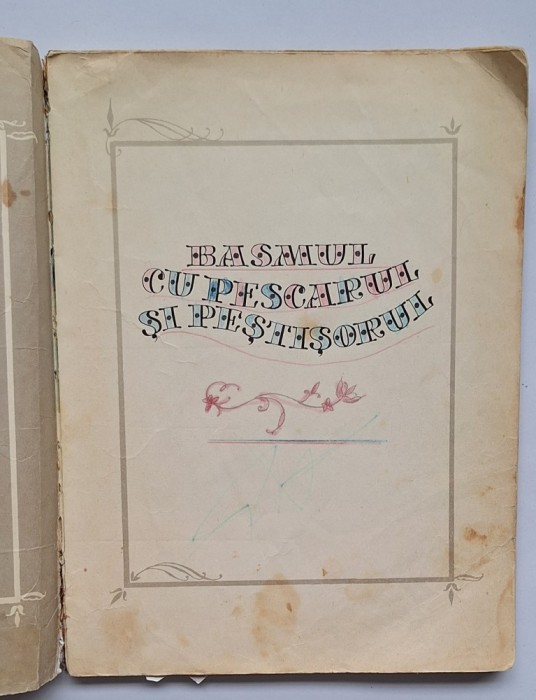 BASMUL
CU PESCARUL
ŞI PEŞTIŞORUL